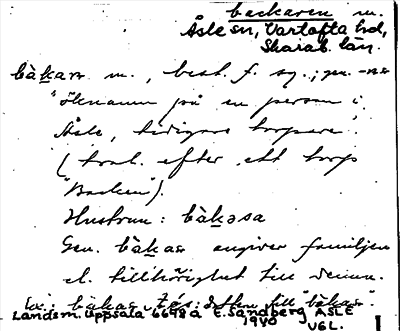 backaren m.
Åsle sn, Vartofta hd,
Skarab. län.
bàkaṛ m., best. f. sg.; gen. -ns
"Öknamn på en person i
Åsle, tidigare torpare."
(trol. efter ett torp
"Backen").
Hustrun: bàkəsa
Gen. bàkas angiver familjen
el. tillhörighet till denna.
Ex.: bakas
Landsm. Uppsala 6698 a E. Sandberg ÅSLE
1940 VGL.